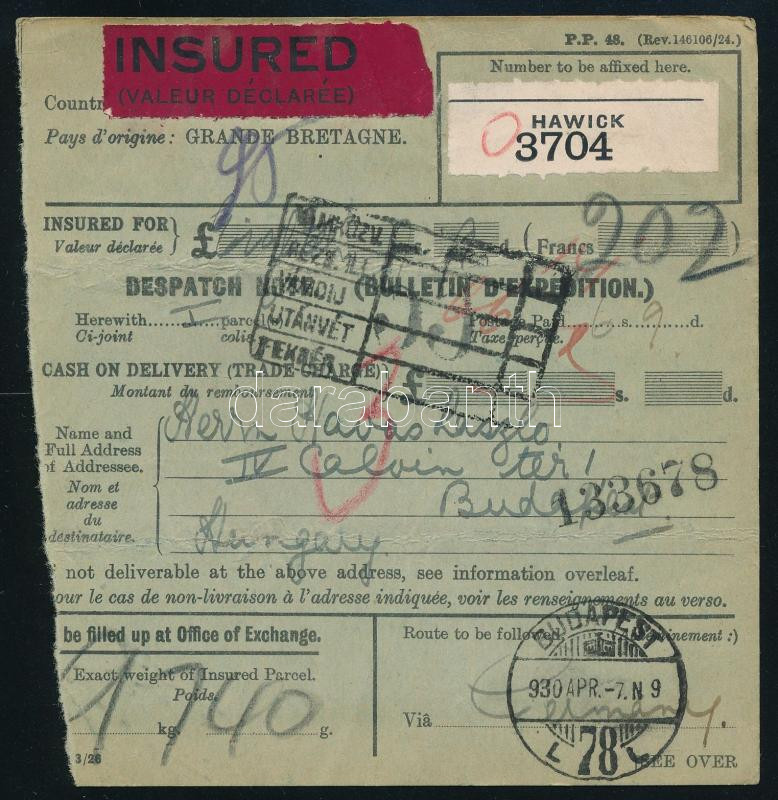 INSURED
(VALEUR DÉCLARÉE)
P.P. 48. (Rev.146106/24.)
Number to be affixed here.
HAWICK
3704
Countr
Pays d'origine: GRANDE BRETAGNE.
INSURED FOR
Valeur déclarée
£ s. d. (Francs 202
DESPATCH NO (BULLETIN D'EXPÉDITION.)
VÁMKÖZV.
VÁMDIJ
UTÁNVÉT
Herewith I parcel
Ci-joint colis
Postage Paid 6 s. 9 d.
Taxe perçue.
CASH ON DELIVERY (TRADE CHARGE) £ s. d.
Montant du remboursement
darabanth
Name and
Full Address
of Addressee.
Nom et
adresse
du
destinataire.
Herrn László
IV Calvin tér 1
Budapest
Hungary
133678
f not deliverable at the above address, see information overleaf.
our le cas de non-livraison à l'adresse indiquée, voir les renseignements au verso.
be filled up at Office of Exchange.
Exact weight of Insured Parcel.
Poids.
1 kg. 740 g.
3/26
Route to be followed (Acheminement:)
Viâ Germany.
BUDAPEST
930 APR.-7. N 9
78
SEE OVER